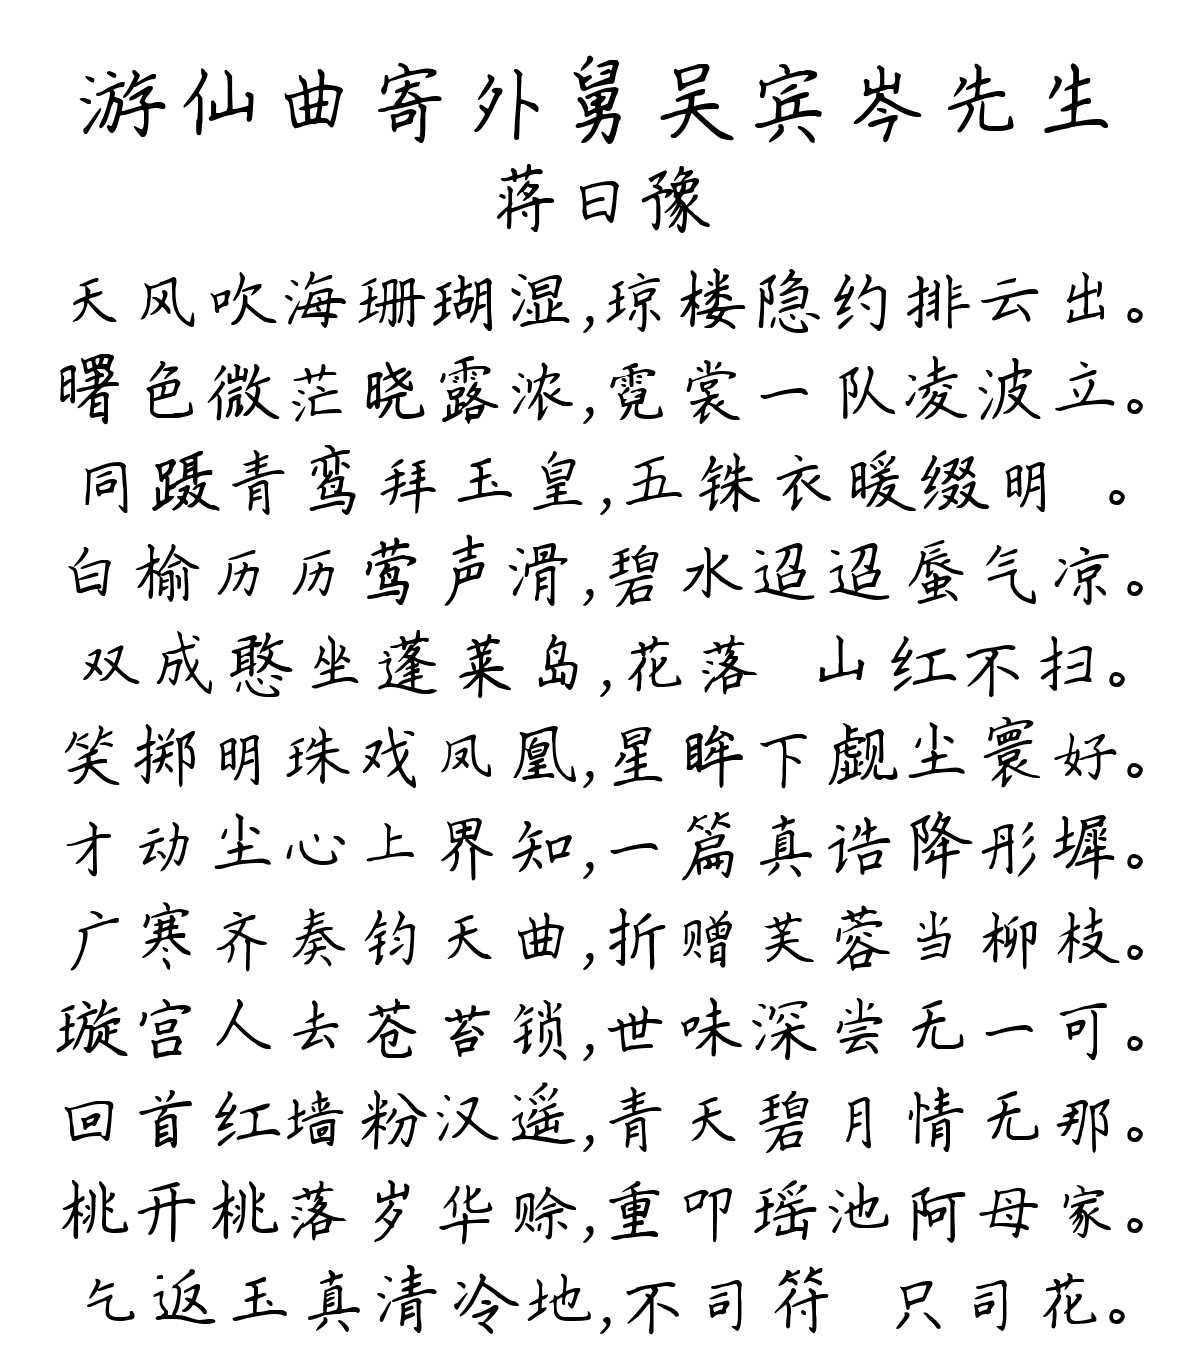 游仙曲寄外舅吴宾岑先生
蒋曰豫
天风吹海珊瑚湿,琼楼隐约排云出。
曙色微茫晓露浓,霓裳一队凌波立。
同蹑青鸾拜玉皇,五铢衣暖缀明 。
白榆历历莺声滑,碧水迢迢蜃气凉。
双成憨坐蓬莱岛,花落 山红不扫。
笑掷明珠戏凤凰,星眸下觑尘寰好。
才动尘心上界知,一篇真诰降彤墀。
广寒齐奏钧天曲,折赠芙蓉当柳枝。
璇宫人去苍苔锁,世味深尝无一可。
回首红墙粉汉遥,青天碧月情无那。
桃开桃落岁华赊,重叩瑶池阿母家。
乞返玉真清冷地,不司符 只司花。